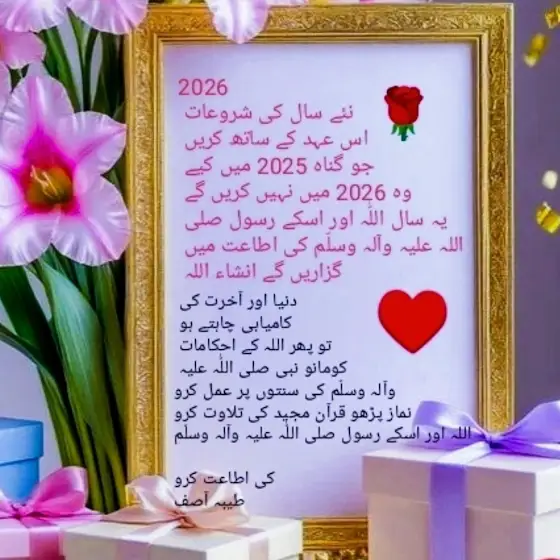 2026
نئے سال کی شروعات
اس عہد کے ساتھ کریں
جو گناہ 2025 میں کیے
وہ 2026 میں نہیں کریں گے
یہ سال اللہ اور اسکے رسول صلی
اللہ علیہ وآلہ وسلّم کی اطاعت میں
گزاریں گے انشاء اللہ
دنیا اور آخرت کی
کامیابی چاہتے ہو
تو پھر اللہ کے احکامات
کومانو نبی صلی اللہ علیہ
وآلہ وسلّم کی سنتوں پر عمل کرو
نماز پڑھو قرآن مجید کی تلاوت کرو
اللہ اور اسکے رسول صلی اللہ علیہ وآلہ وسلّم
کی اطاعت کرو
طیبہ آصف